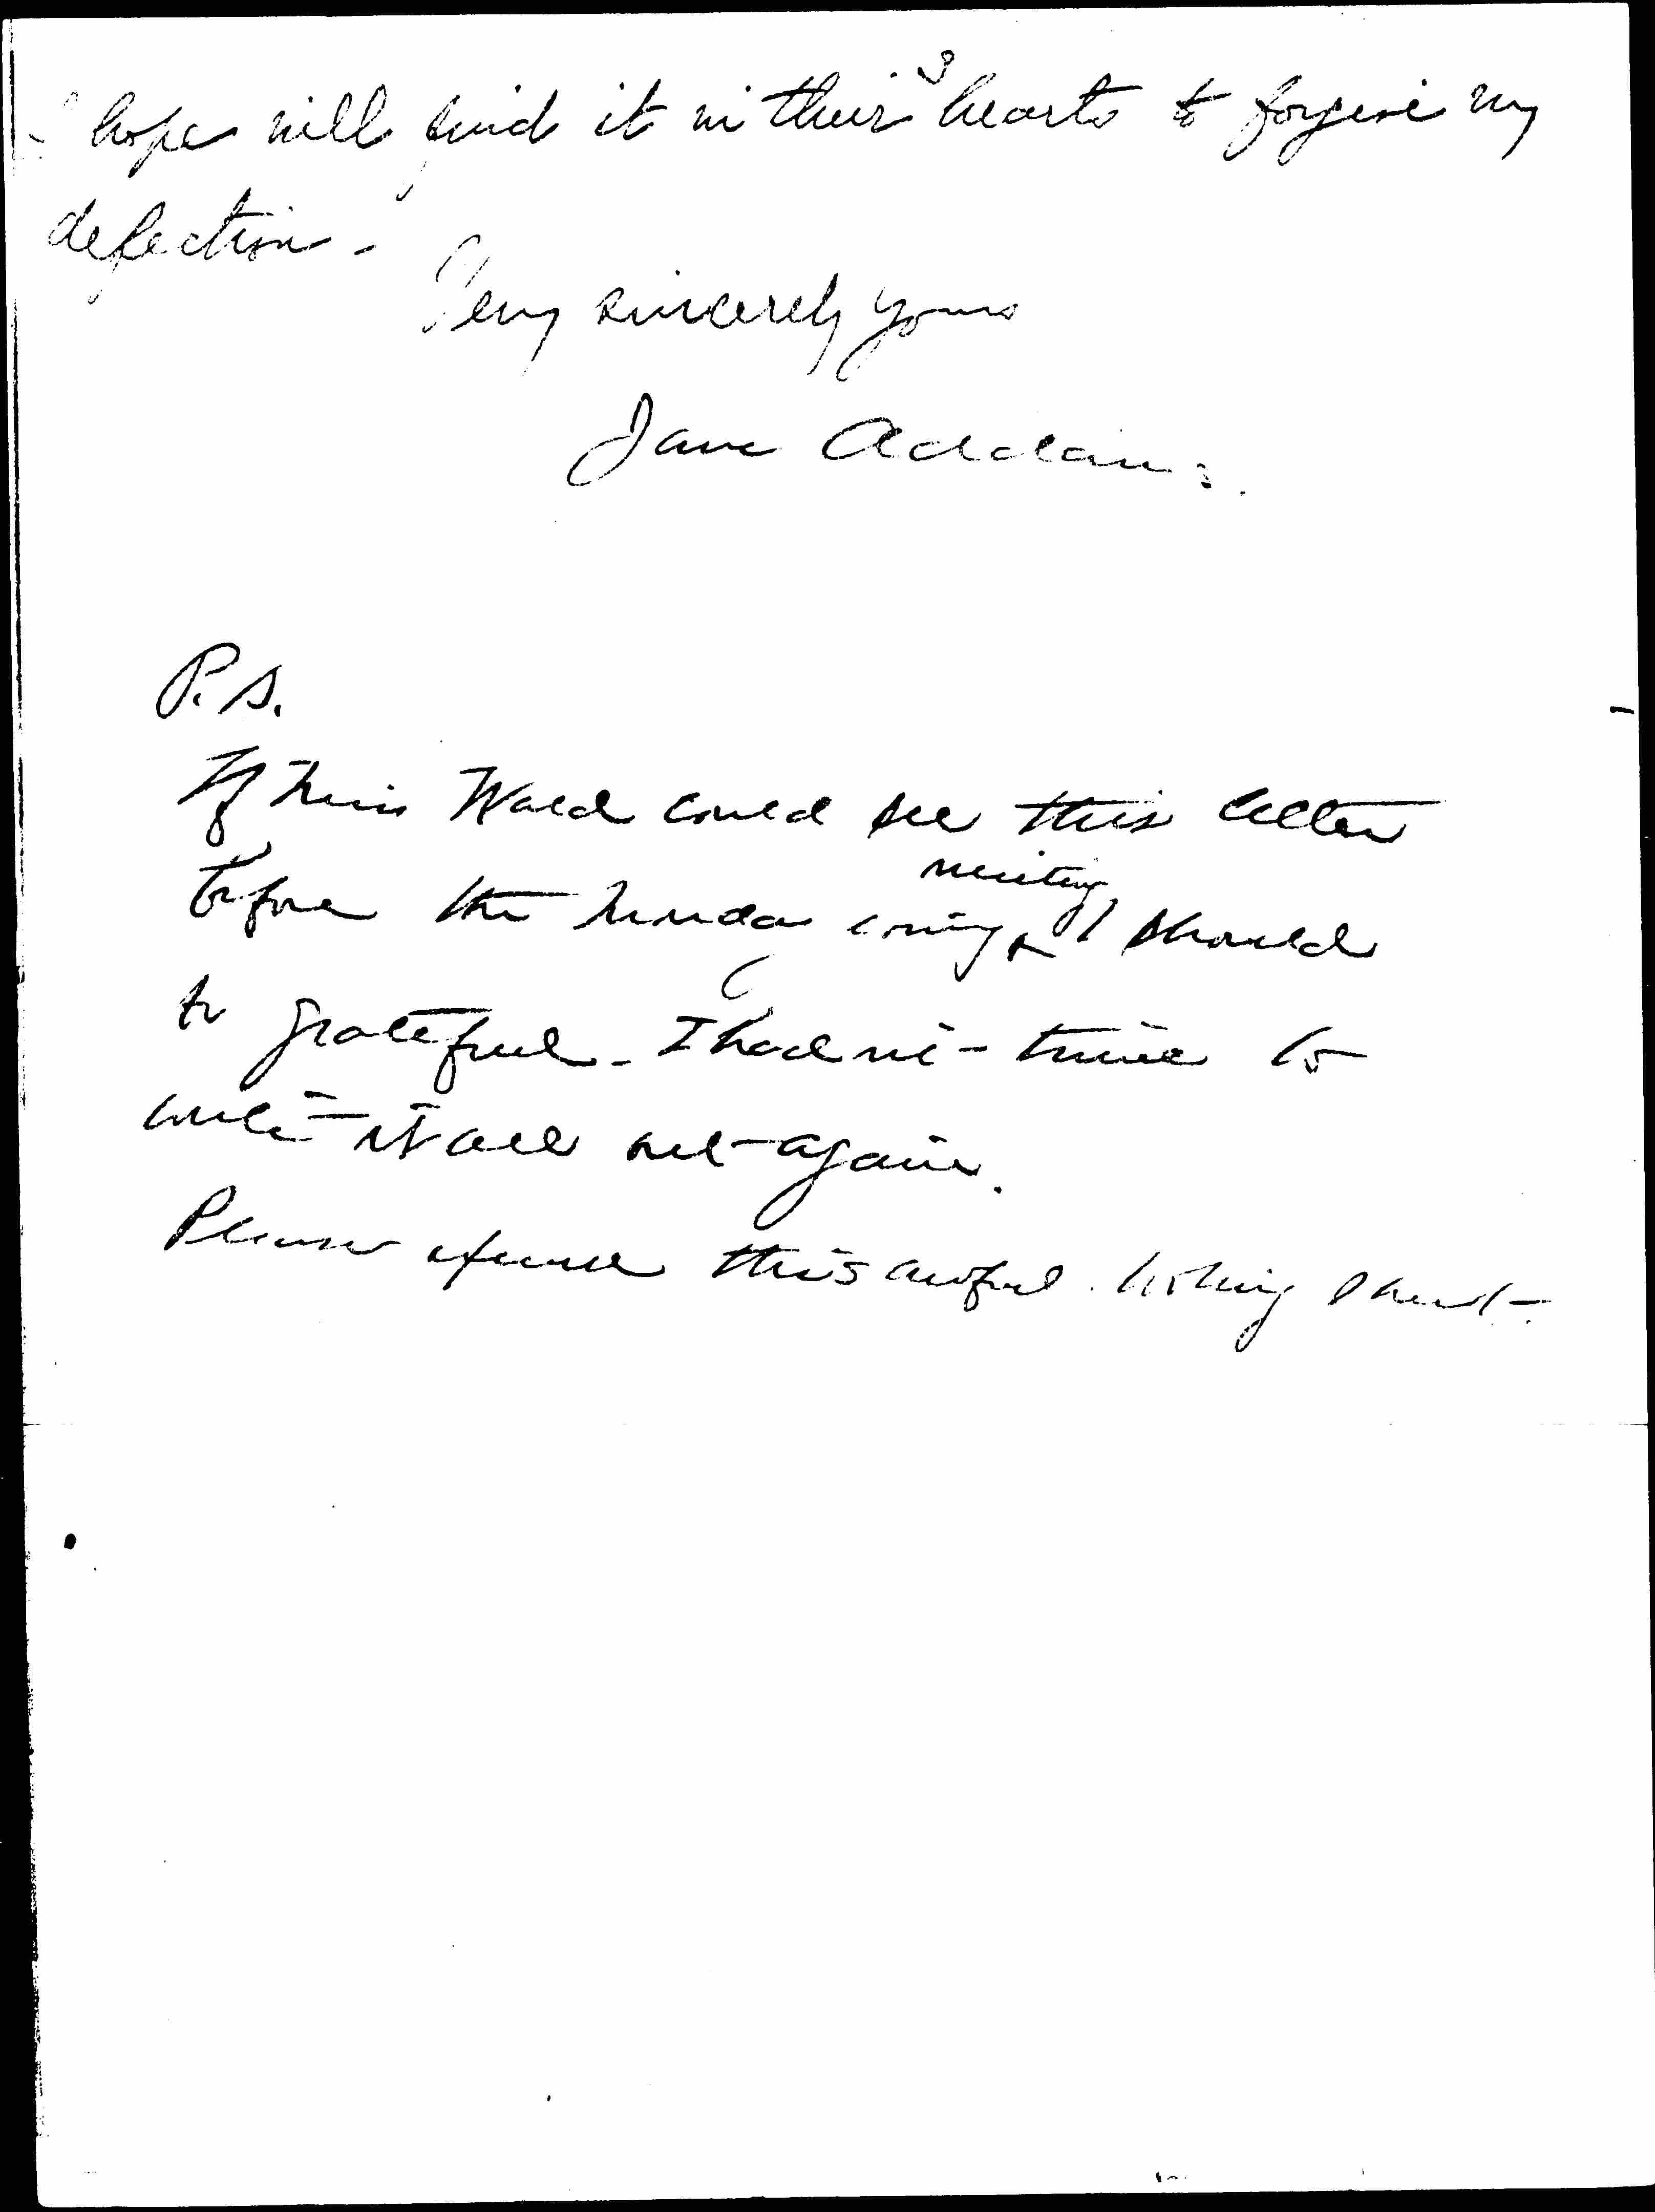 I hope will find it in their hearts to forgive my
defection -
Very sincerely yours
Jane Addams.
P.S.
If Miss Wald could see this letter
before the Monday evening meeting I should
be grateful - I had no time to
write it all out again.
Please excuse this awful looking sheet.